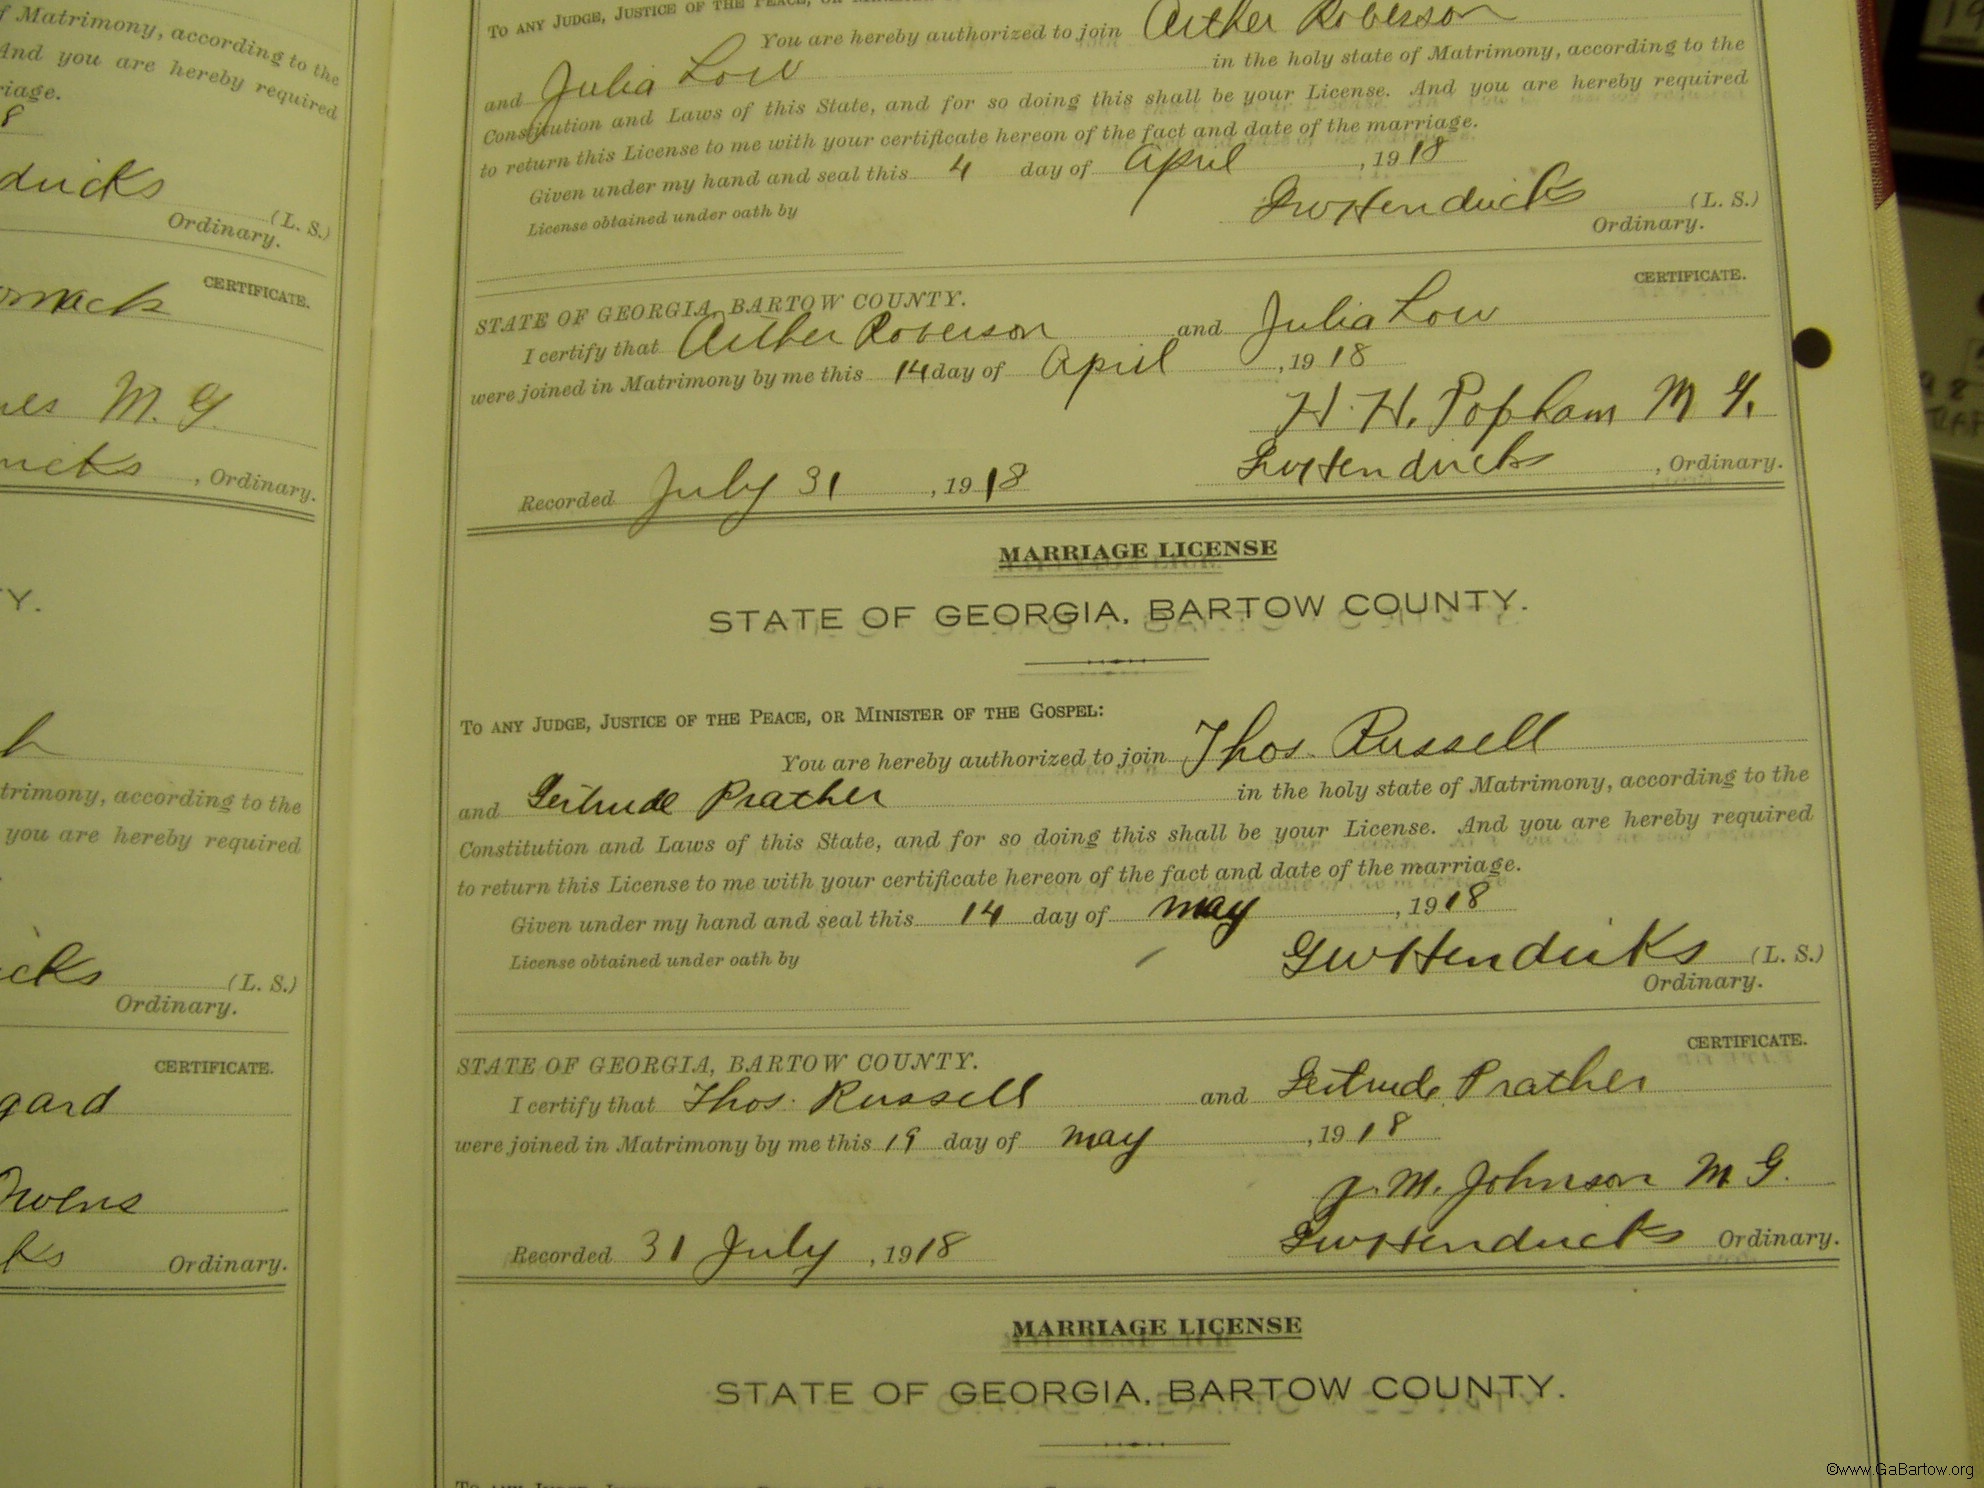 f Matrimony, according to the
And you are hereby required
riage.
8
dricks
(L. S.)
Ordinary.
CERTIFICATE.
ormack
nes M. G.
ricks , Ordinary.
Y.
h
trimony, according to the
you are hereby required
cks (L. S.)
Ordinary.
CERTIFICATE.
gard
Owens
ks Ordinary.
TO ANY JUDGE, JUSTICE OF THE PEACE, OR MINISTER O
You are hereby authorized to join Arther Roberson
and Julia Low in the holy state of Matrimony, according to the
Constitution and Laws of this State, and for so doing this shall be your License. And you are hereby required
to return this License to me with your certificate hereon of the fact and date of the marriage.
Given under my hand and seal this 4 day of April , 1918
License obtained under oath by GWHendricks (L. S.)
Ordinary.
CERTIFICATE.
STATE OF GEORGIA, BARTOW COUNTY.
I certify that Arther Roberson and Julia Low
were joined in Matrimony by me this 14 day of April , 1918
H. H. Popham M G.
GWHendricks , Ordinary.
Recorded July 31 , 1918
MARRIAGE LICENSE
STATE OF GEORGIA, BARTOW COUNTY.
TO ANY JUDGE, JUSTICE OF THE PEACE, OR MINISTER OF THE GOSPEL:
You are hereby authorized to join Thos. Russell
and Gertrude Prather in the holy state of Matrimony, according to the
Constitution and Laws of this State, and for so doing this shall be your License. And you are hereby required
to return this License to me with your certificate hereon of the fact and date of the marriage.
Given under my hand and seal this 14 day of May , 1918
License obtained under oath by GWHendricks (L. S.)
Ordinary.
CERTIFICATE.
STATE OF GEORGIA, BARTOW COUNTY.
I certify that Thos. Russell and Gertrude Prather
were joined in Matrimony by me this 19 day of May , 1918
J. M. Johnson M G.
Recorded 31 July , 1918 GWHendricks Ordinary.
MARRIAGE LICENSE
STATE OF GEORGIA, BARTOW COUNTY.
©www.GaBartow.org